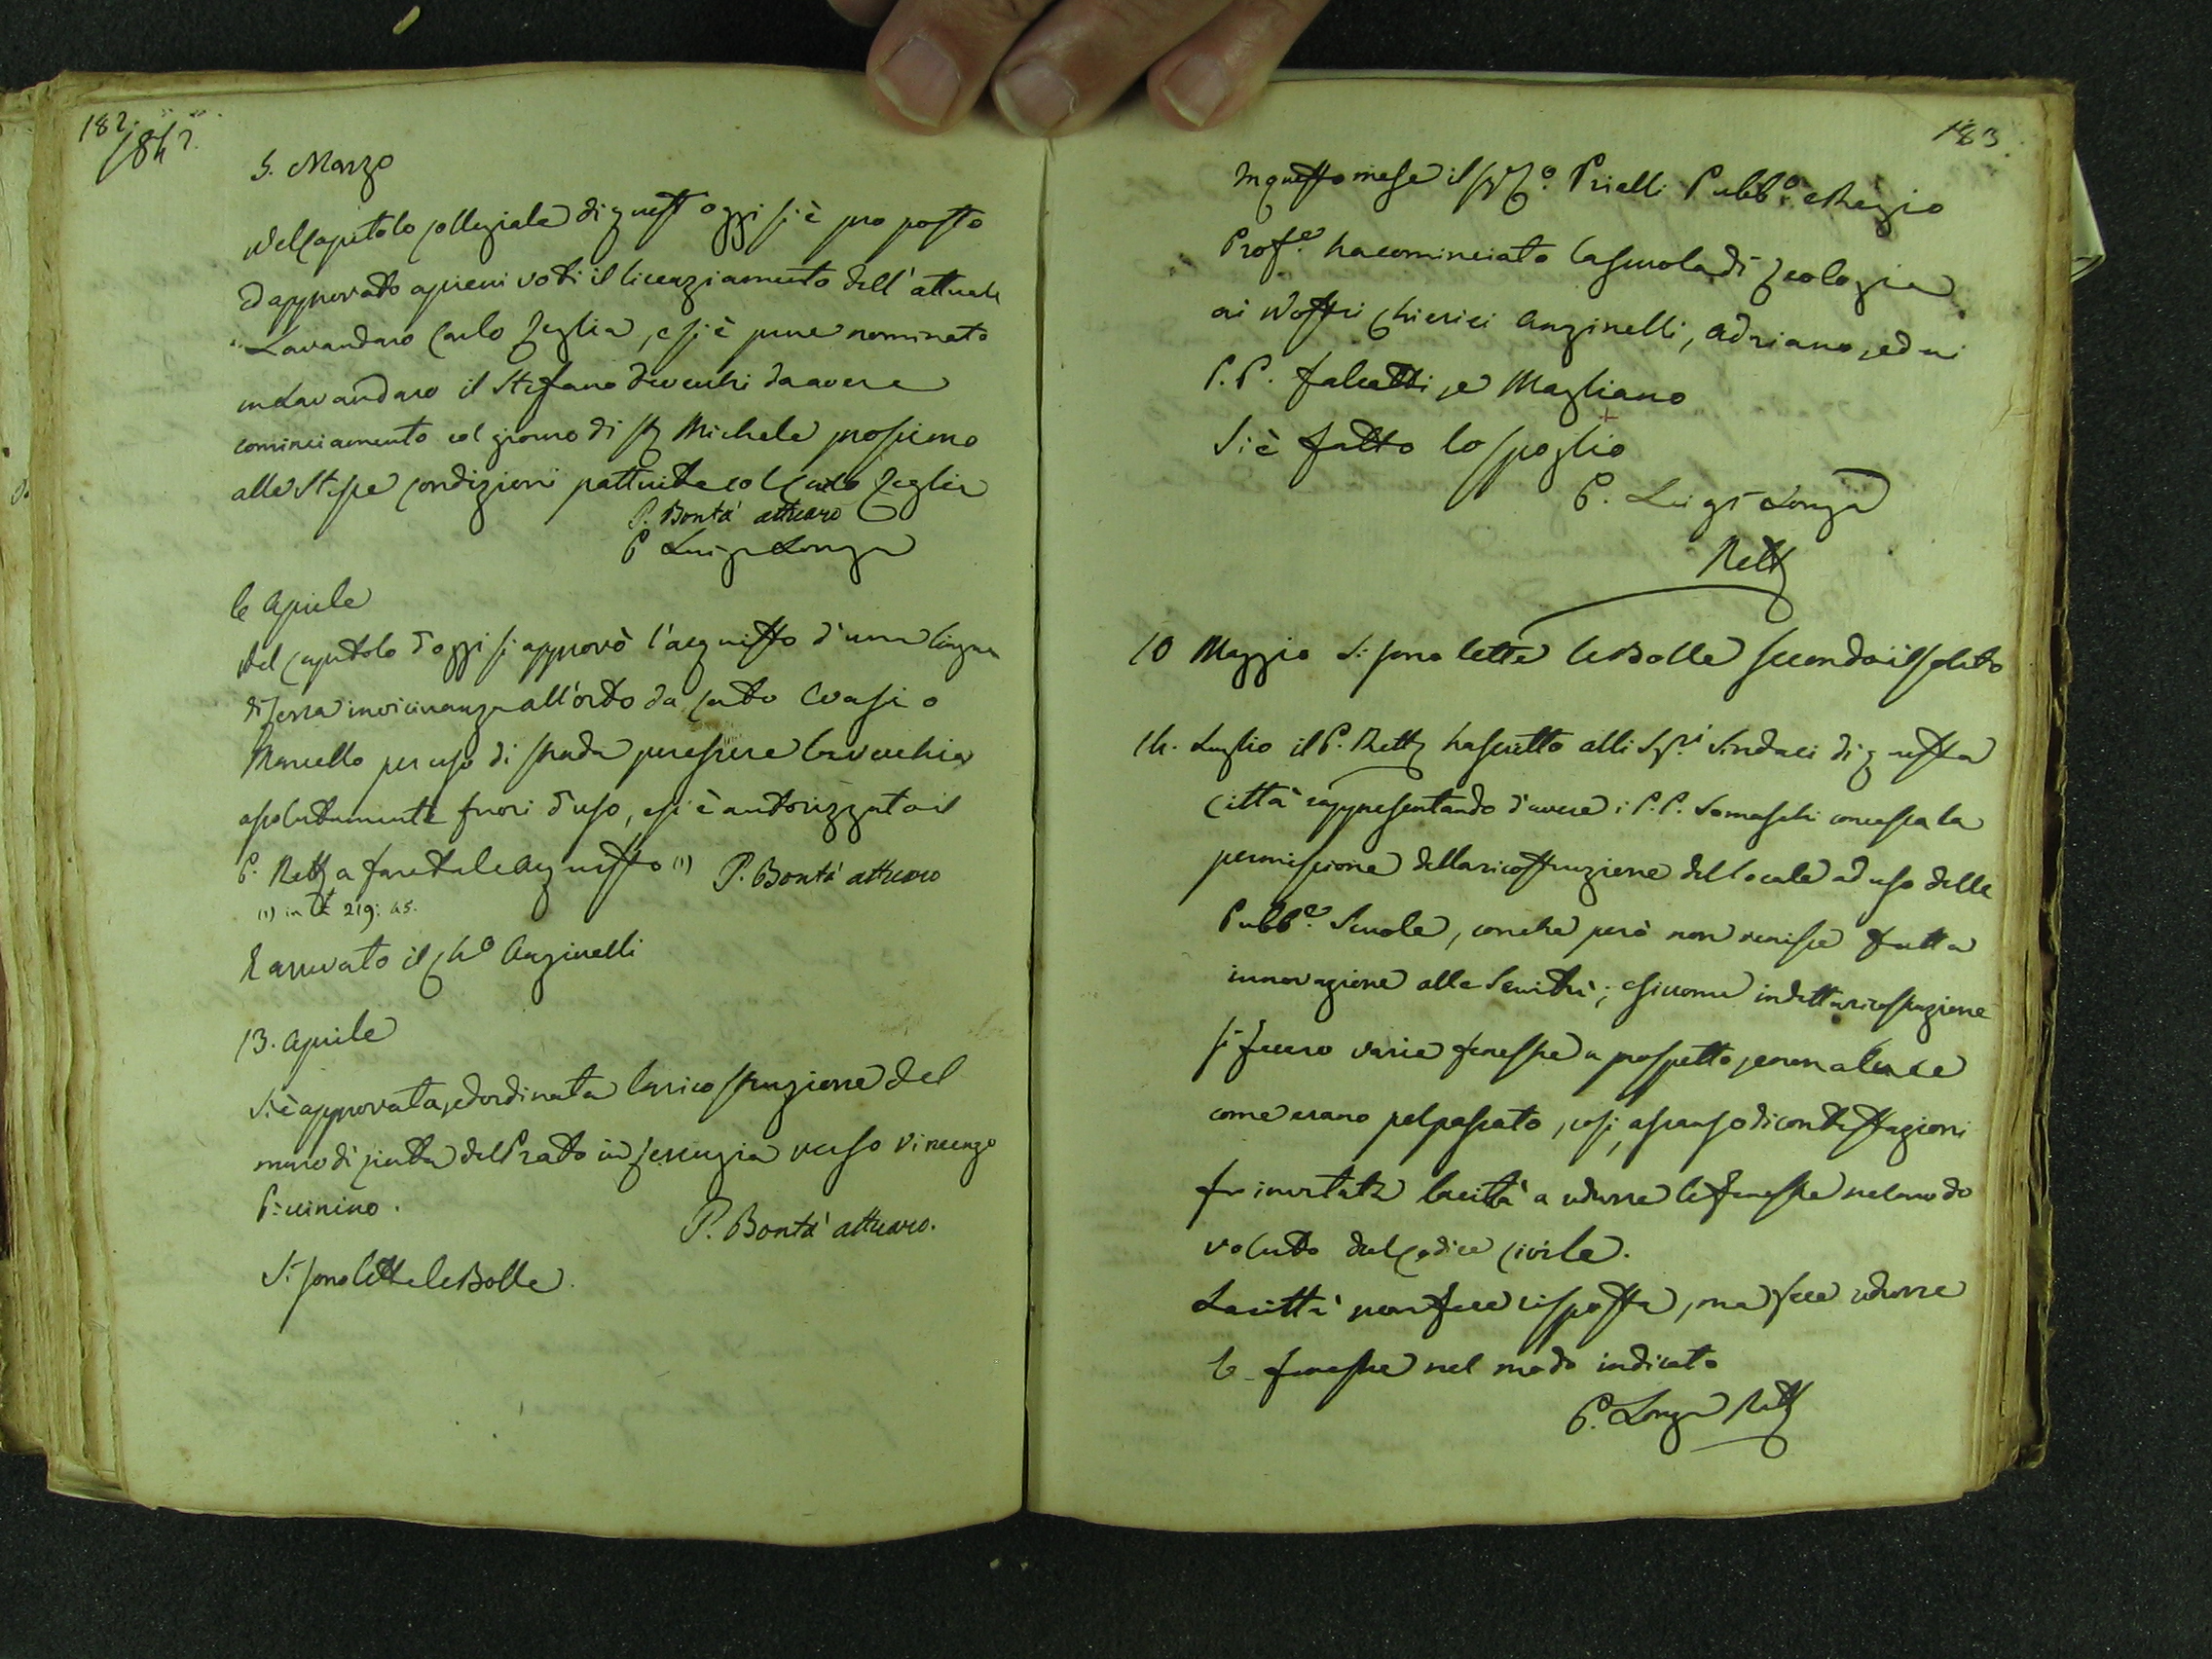 182.
1842.
5. Marzo
Nel Capitolo Collegiale di quest'oggi si è proposto
ed approvato a pieni voti il licenziamento dell'attuale
Lavandaro Carlo Zeglia, e si è pure nominato
in Lavandaro il Stefano da avere
cominciamento col giorno di S. Michele prossimo
alle stesse condizioni pattuite col Carlo Zeglia
P. Bontà attuaro
P. Luigi Longa
6 Aprile
Nel Capitolo d'oggi si approvò l'acquisto d'una lingua
di terra in vicinanza all'orto da Evasio
Marcello per uso di strada per essere la vecchia
assolutamente fuori d'uso, e si è autorizzato il
P. Rett. a fare tale acquisto (1) P. Bontà attuaro
(1) in 219: 45.
È arrivato il Ch.o Anginelli
13. Aprile
Si è approvata, ed ordinata la ricostruzione del
muro di cinta del Prato in verso Vincenzo
P. Bontà attuaro.
Si sono lette le Bolle.
183.
In questo mese il Prielli Pubb.o e Regio
Prof.e ha cominciato la scuola di Teologia
ai Nostri Chierici Anginelli, Adriano, ed ai
P.P. Falcatti, e Magliano
Si è fatto lo spoglio
P. Luigi Longa
Rett.
10 Maggio Si sono lette le Bolle secondo il solito
14. Luglio il P. Rett. ha scritto alli Sig.i Sindaci di questa
Città rappresentando d'avere i P.P. Somaschi concessa la
permissione della ricostruzione del locale ad uso delle
Pubb.e Scuole, con che però non venisse fatta
innovazione alle Servitù; e siccome in detta ricostruzione
si fecero varie finestre a prospetto, e non a luce
come erano pel passato, così, a scanso di contestazioni
fu invitata la città a ridurre le finestre nel modo
voluto dal Codice Civile.
La città non fece risposta, ma fece ridurre
le finestre nel modo indicato
P. Longa Rett.